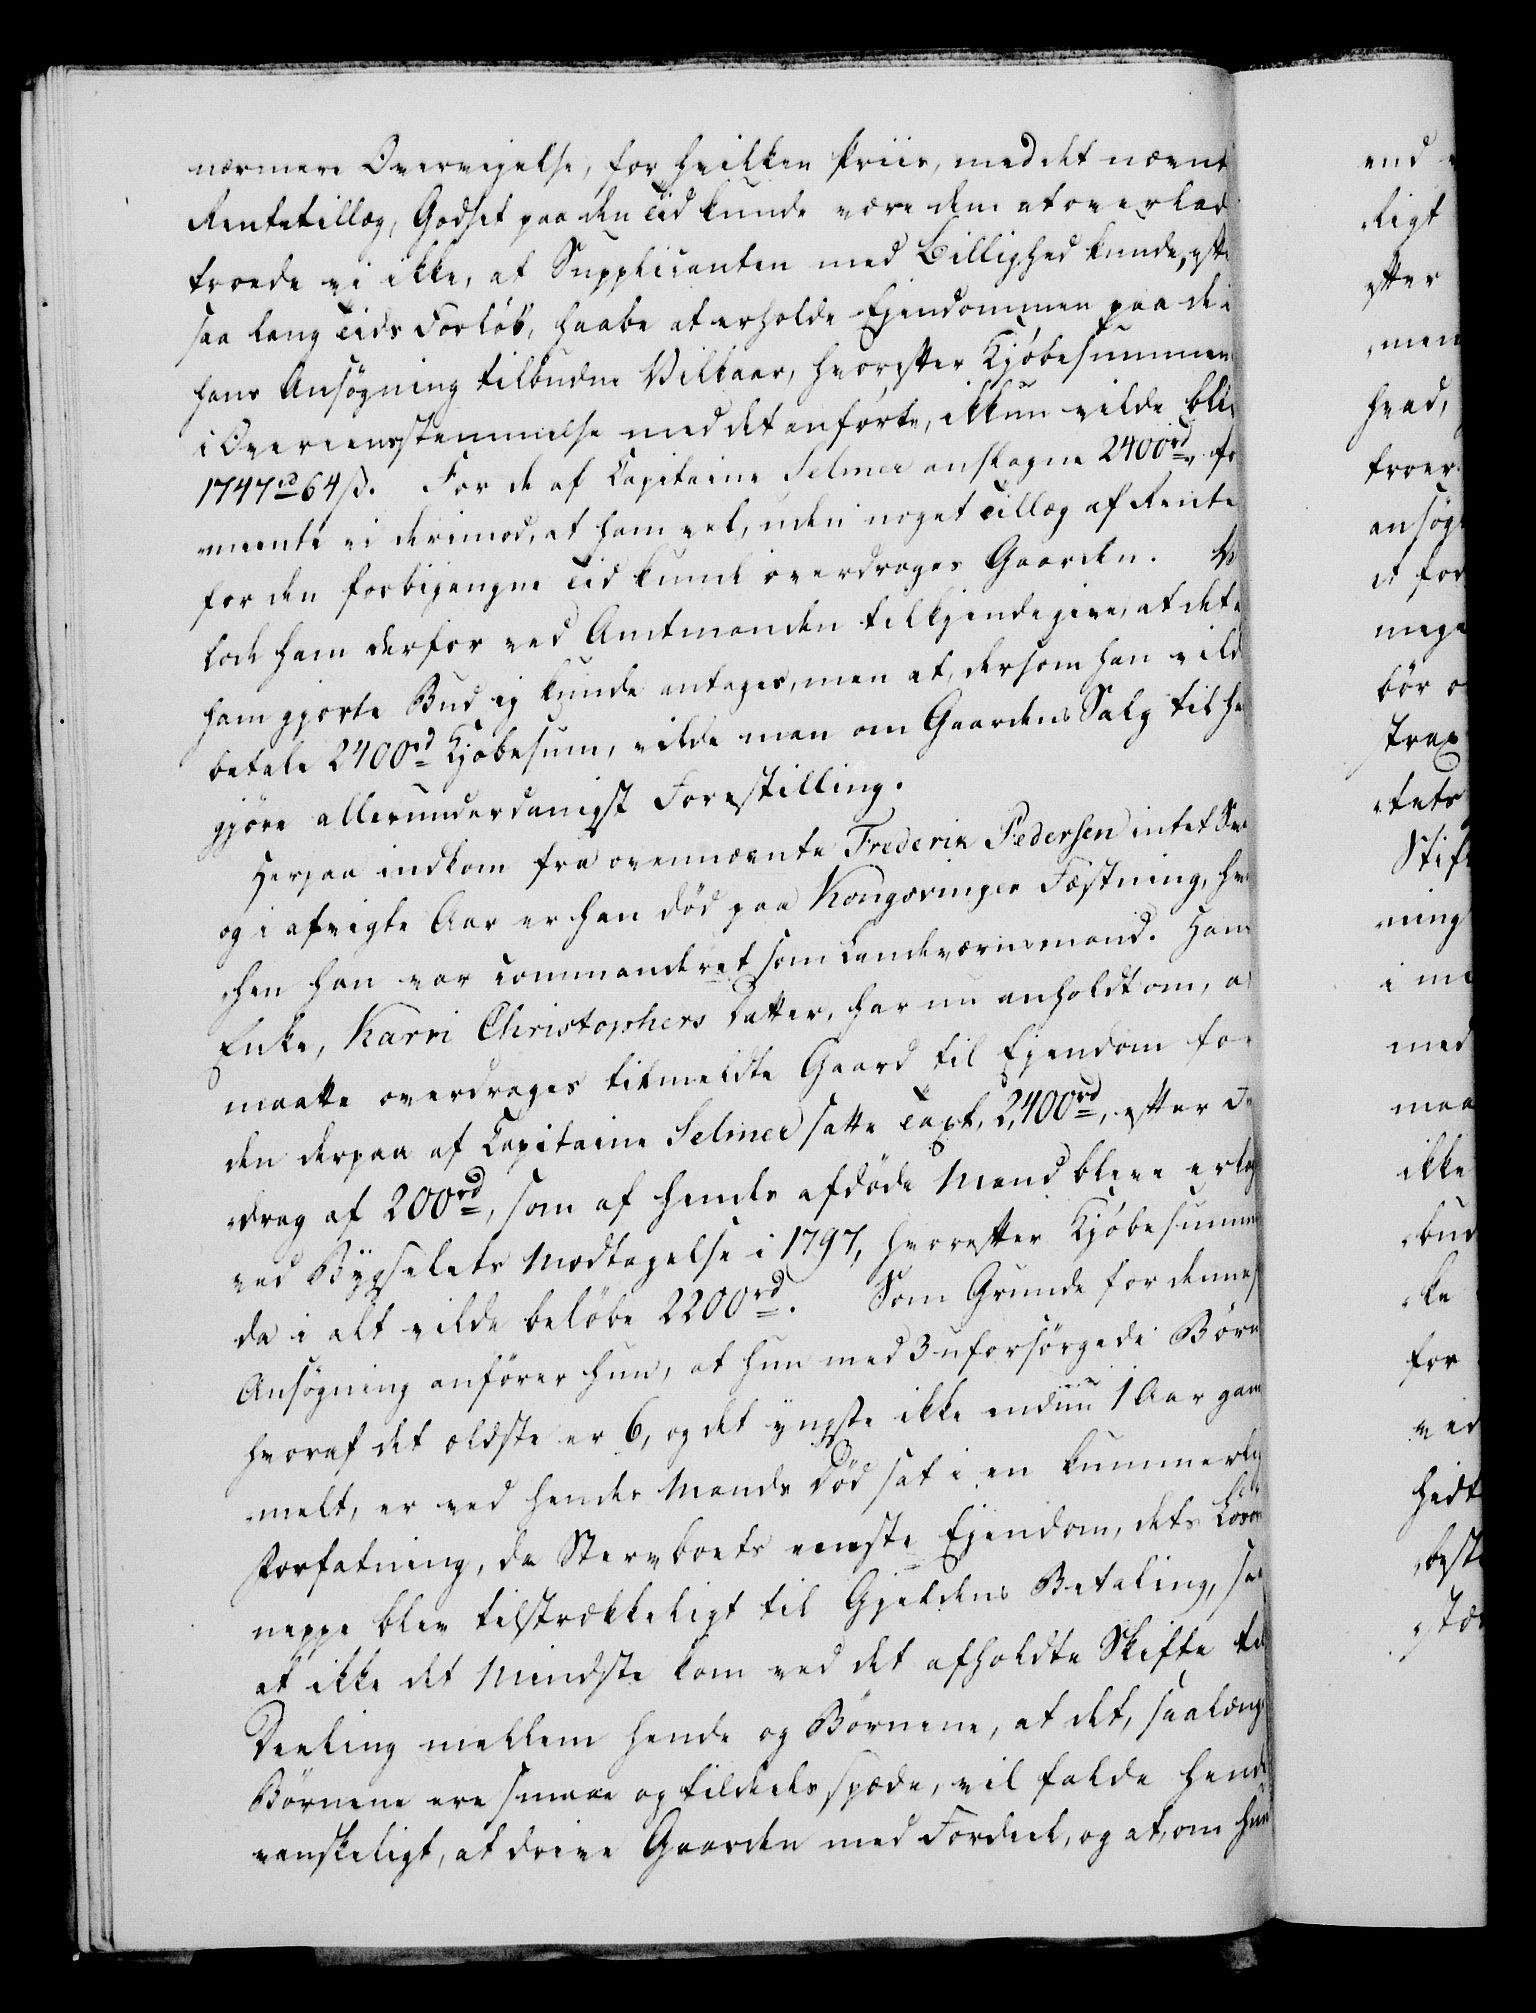 nærmere Overvejelse, for hvilken Priis, med det nævnt
Rentetillæg, Godset paa den Tid kunde være dem at overlad
troede vi ikke, at Supplicanten med Billighed kunde, efte
saa lang Tids Forløb, haabe at erholde Ejendommen paa de i
hans Ansøgning tilbudne Vilkaar, hvorefter Kjøbesummen
i Overeensstemmelse med det anførte, ikkun vilde bliv
1747rd 64 ß. For de af Capitaine Selmer anslagne 2400rd,
meente vi derimod, at ham vel, uden noget Tillæg af Rente
for den forbigangne Tid kunde overdrages Gaarden. V
lode ham derfor ved Amtmanden tilkjendegive, at det a
ham gjorte Bud ej kunde antages, men at, dersom han vild
betale 2400rd Kjøbesum, vilde man om Gaardens Salg til ha
gjøre allerunderdanigst Forestilling.
Herpaa indkom fra ovennævnte Frederik Pedersen intet Sva
og i afvigte Aar er han død paa Kongsvinger Fæstning, hvo
hen han var commanderet som Landeværnsmand. Hans
Enke, Karri Christophers Datter, har nu anholdt om, a
maatte overdrages titmeldte Gaard til Ejendom for
den derpaa af Capitaine Selmer satte Taxt, 2,400rd, efter Fra
drag af 200rd, som af hendes afdøde Mand bleve erlag
ved Bygselets Modtagelse i 1797, hvorefter Kjøbesumme
da i alt vilde beløbe 2200rd. Som Grunde for denne
Ansøgning anfører hun, at hun med 3 uforsørgede Børn
hvoraf det ældste er 6, og det yngste ikke endnu 1 Aar gam
melt, er ved hendes Mands Død sat i en kummerlig
Forfatning, da Stervboets eneste Ejendom, dets Løsøre
neppe blev tilstrækkeligt til Gjeldens Betaling, saa
at ikke det Mindste kom ved det afholdte Skifte til
Deeling mellem hende og Børnene, at det, saalænge
Børnene ere smaae og tildeels spæde, vil falde hende
vanskeligt, at drive Gaarden med Fordeel, og at, om hun
end
ligt
efter
men
hvad,
troer
ansøg
et for
mege
bør o
strax
tets
Stift
ning
i me
med
maa
ikke
bud
ke
for
ved
hedt
best